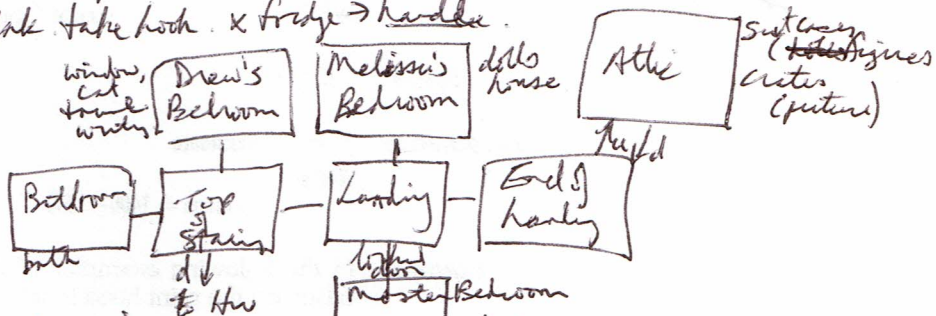 take hook. x fridge → handle.
window,
cat
Drew's
Bedroom
Melissa's
Bedroom
dolls
house
Attic
suitcases
figures
crates
(picture)
Bathroom
bath
Top
of
Stairs
Landing
End of
Landing
locked
door
Master Bedroom
d
to